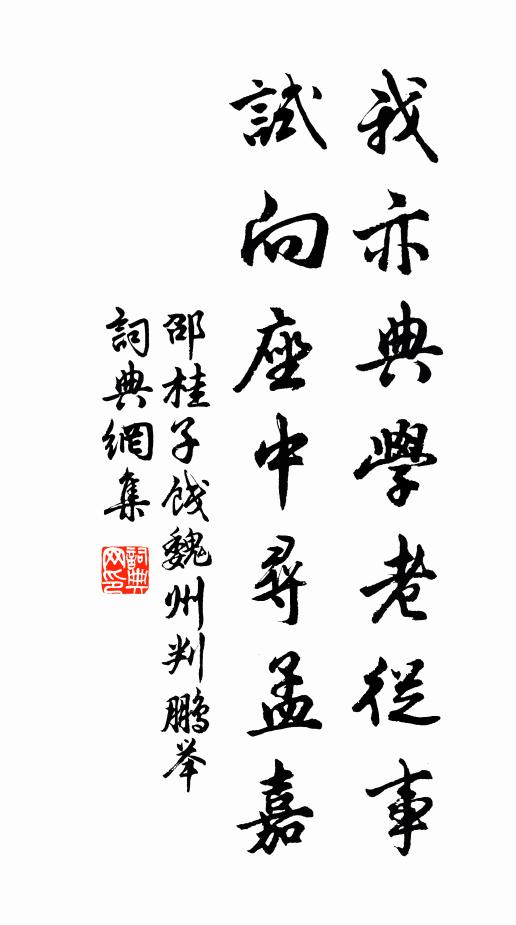 我亦典學老從事
試向座中尋孟嘉
邵桂子餞魏州判鵬举
詞典網集
詞典网印